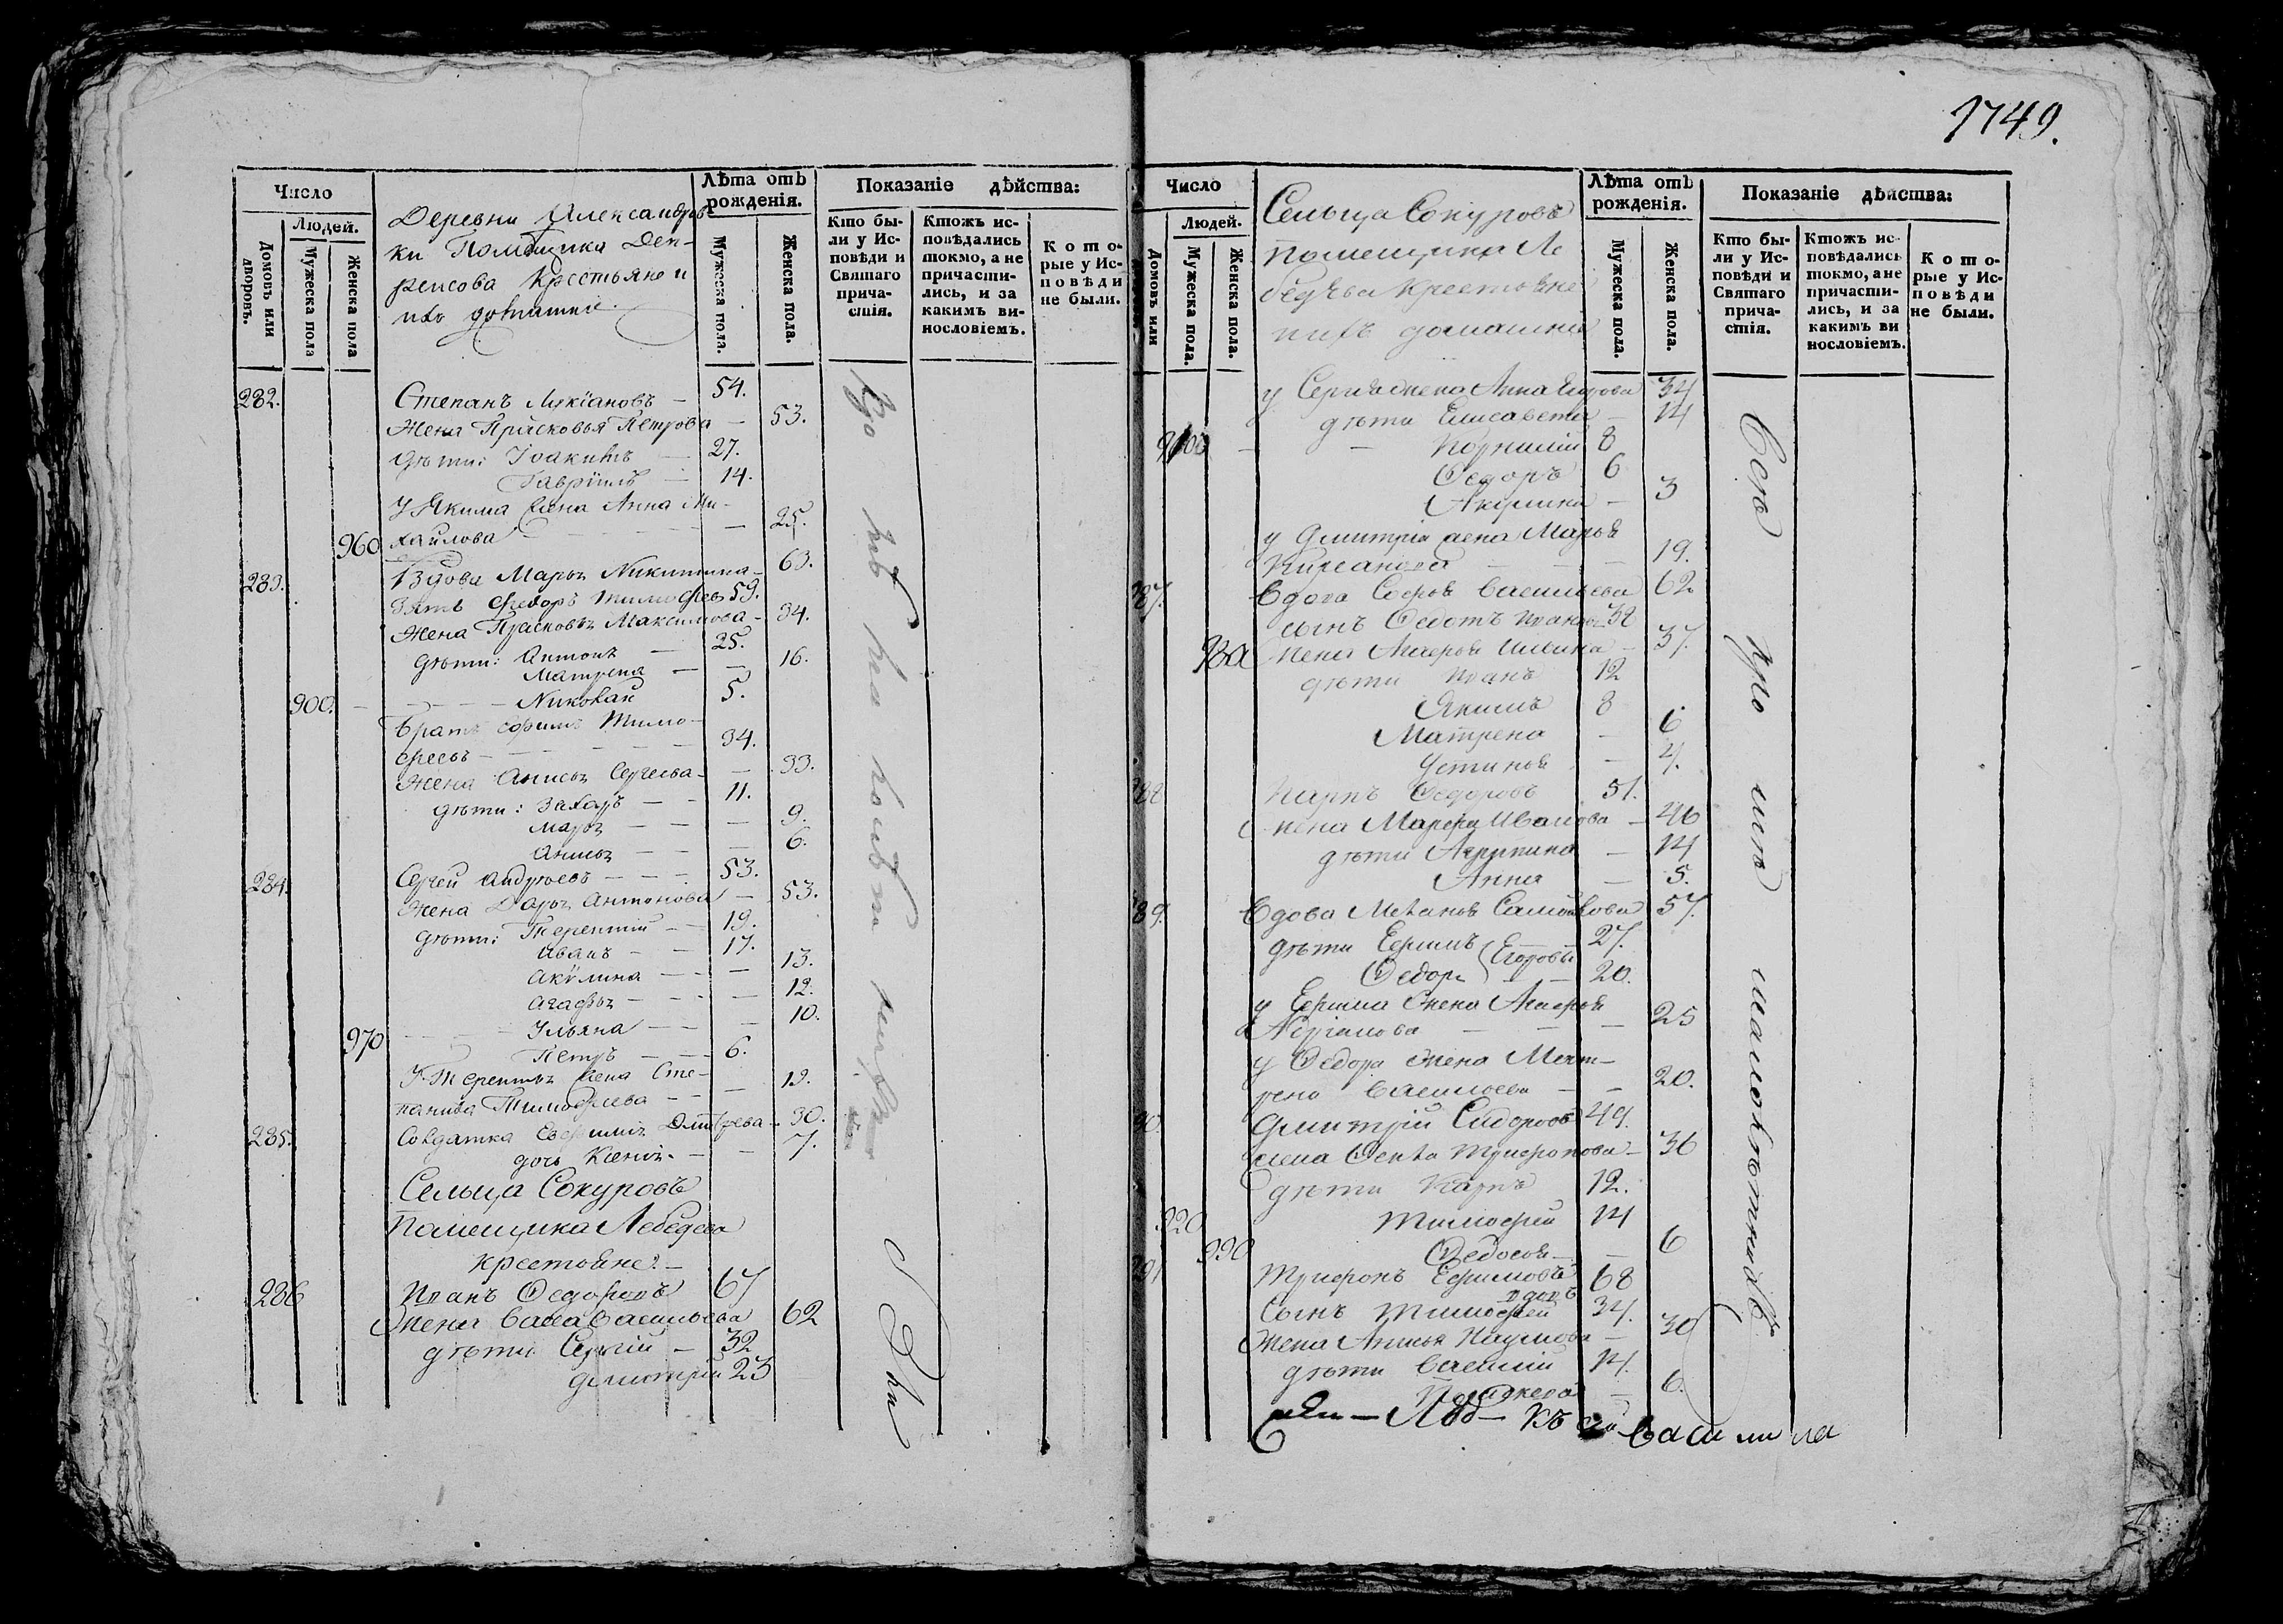 1749.
Число
Людей.
Домовъ или дворовъ.
Мужеска пола
Женска пола
Деревни Александров-
ки Помѣщика Ден-
рисова Крестьяне и
ихъ домашние.
Лѣта отъ рожденія.
Мужеска пола.
Женска пола.
Показаніе дѣйства:
Кто бы-
ли у Ис-
повѣди и
Святаго
прича-
стія.
Ктожъ ис-
повѣдались
токмо, а не
причасти-
лись, и за
какимъ ви-
нословіемъ.
К о т о-
рые у Ис-
п о в ѣ д и
не были.
282. Степанъ Лукіановъ — 54.
Жена Прасковья Петрова — 53.
дѣти: Іоакимъ — 27.
Гавріилъ — 14.
У Якима жена Анна Ми-
960 хайлова — 25.
283. Вдова Марья Никитина — 63.
Зять Федоръ Тимофеев 59.
Жена Прасковья Максимова — 34.
дѣти: Антонъ — 25.
Матрена — 16.
900. Николай 5.
Братъ Ефимъ Тимо-
феевъ — 34.
Жена Анисья Сергеева — 33.
дѣти: Захаръ — 11.
Марья — 9.
Анисья — 6.
284. Сергей Андреевъ — 53.
Жена Дарья Антонова — 53.
дѣти: Терентій — 19.
Иванъ — 17.
Акулина — 13.
Агафья — 12.
970 Ульяна — 10.
Петръ — 6.
У Терентья жена Сте-
панида Тимофеева — 19.
285. Солдатка Евфимья Дмитрева — 30.
дочь Ксенія — 7.
Сельца Сокуровъ
Помещика Лебедева
крестьяне —
286 Иванъ Федоровъ 67
Жена Васса Васильева 62
дѣти Сергій — 32
Димитрій 23
Число
Людей.
Домовъ или
Мужеска пола.
Женска пола.
Сельца Сокуровъ
Помещика Ле
бедева крестьяне
и ихъ домашние
Лѣта отъ рожденія.
Мужеска пола.
Женска пола.
Показаніе дѣйства:
Кто бы-
ли у Ис-
повѣди и
Святаго
прича-
стія.
Ктожъ ис-
повѣдались
токмо, а не
причасти-
лись, и за
какимъ ви
нословіемъ.
К о т о-
рые у Ис-
п о в ѣ д и
не были.
у Сергія жена Анна Егорова 34
дѣти Елисавета — 14
Корнилій 8
Федоръ 6
Акулина — 3
у Димитрія жена Марья
Кирсанова — 19.
87. Вдова Софья Васильева 62
сынъ Федотъ Иванов 38
980 жена Агафья Ильина — 37.
дѣти Иванъ 12
Якимъ 8
Матрена — 6
Устинья — 4.
288 Карпъ Федоровъ 51.
жена Марфа Иванова — 46
дѣти Агрипина — 14
Анна — 5.
89. Вдова Меланья Самойлова 57.
дѣти Ефимъ } Егоровы 27.
Федоръ — 20.
у Ефима жена Агафья
— 25
у Федора жена Мат-
рена Васильева — 20.
90. Димитрій Сидоровъ 49.
жена Фекла Трифонова — 36
дѣти Карпъ 12.
920 Тимофей 14
990 Федосья — 6
291 Трифонъ Ефимовъ 68
вдовъ
Сынъ Тимофей 34.
Жена Анисья Наумова — 30
дѣти Василій 14.
— 6.